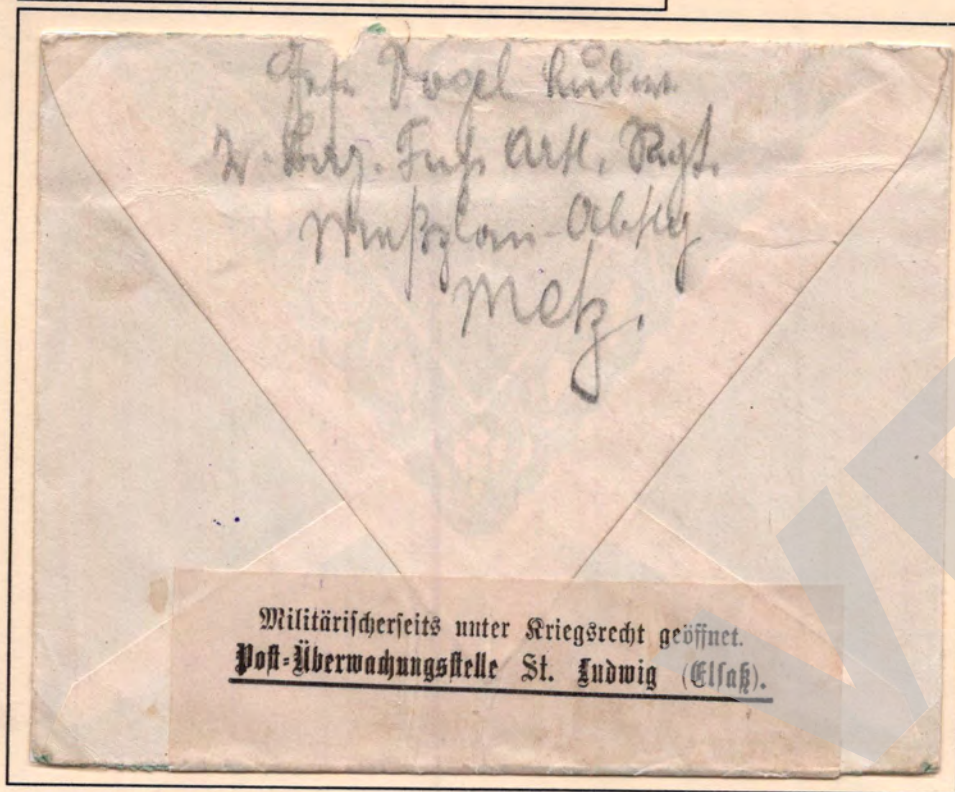 Gefr. Vogel
2. Bay. Fuß. Artl. Rgt.
Meßplan-Abtlg
Metz.
Militärischerseits unter Kriegsrecht geöffnet.
Post-Überwachungsstelle St. Ludwig (Elsaß).